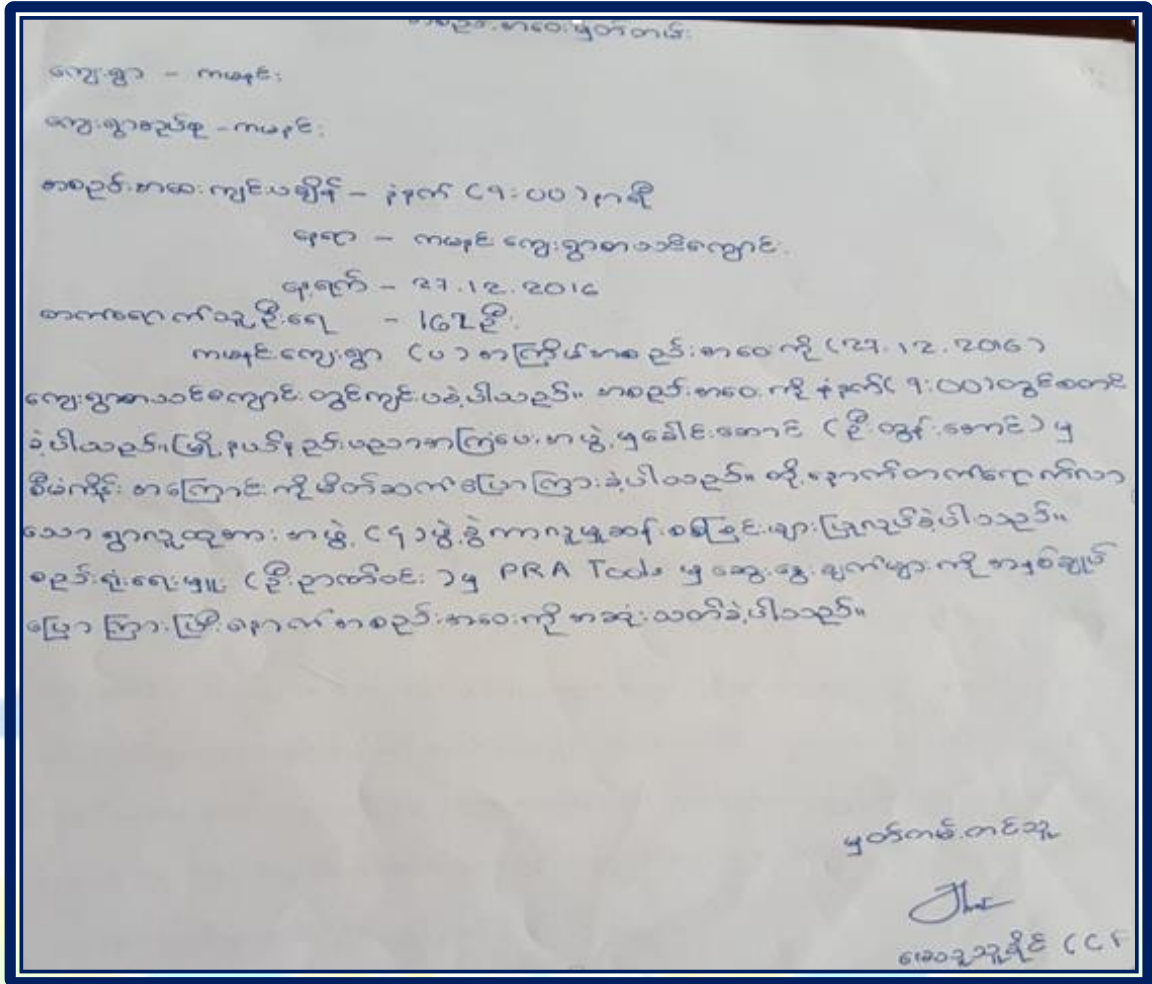 အစည်းအဝေးမှတ်တမ်း
ကျေးရွာ - ကမနင်း
ကျေးရွာအုပ်စု - ကမနင်း
အစည်းအဝေးကျင်းပချိန် - နံနက် (9:00) နာရီ
နေရာ - ကမနင်းကျေးရွာစာသင်ကျောင်း
နေ့ရက် - 27.12.2016
တက်ရောက်သူဦးရေ - 162 ဦး
ကမနင်းကျေးရွာ (ပ) အကြိမ်အစည်းအဝေးကို (27.12.2016)
ကျေးရွာစာသင်ကျောင်းတွင်ကျင်းပခဲ့ပါသည်။ အစည်းအဝေးကို နံနက် (9:00) တွင်စတင်
ခဲ့ပါသည်။ မြို့နယ်နည်းပညာအကြံပေးအဖွဲ့မှခေါင်းဆောင် (ဦးထွန်းအောင်) မှ
စီမံကိန်းအကြောင်းကိုမိတ်ဆက်ပြောကြားခဲ့ပါသည်။ ထို့နောက်တက်ရောက်လာ
သောရွာလူထုအားအဖွဲ့ (၄) ဖွဲ့ခွဲကာလူမှုဆန်းစစ်ခြင်းများပြုလုပ်ခဲ့ပါသည်။
စည်းရုံးရေးမှူး (ဦးဉာဏ်ဝင်း) မှ PRA Tools မှဆွေးနွေးချက်များကိုအနှစ်ချုပ်
ပြောကြားပြီးနောက်အစည်းအဝေးကိုအဆုံးသတ်ခဲ့ပါသည်။
မှတ်တမ်းတင်သူ
(CF